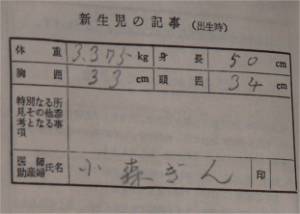 新生児の記事（出生時）
体重 3.375 kg 身長 50 cm
胸囲 33 cm 頭囲 34 cm
特別なる所
見その他参
考となる事
項
医師
助産婦 氏名 小森ぎん 印